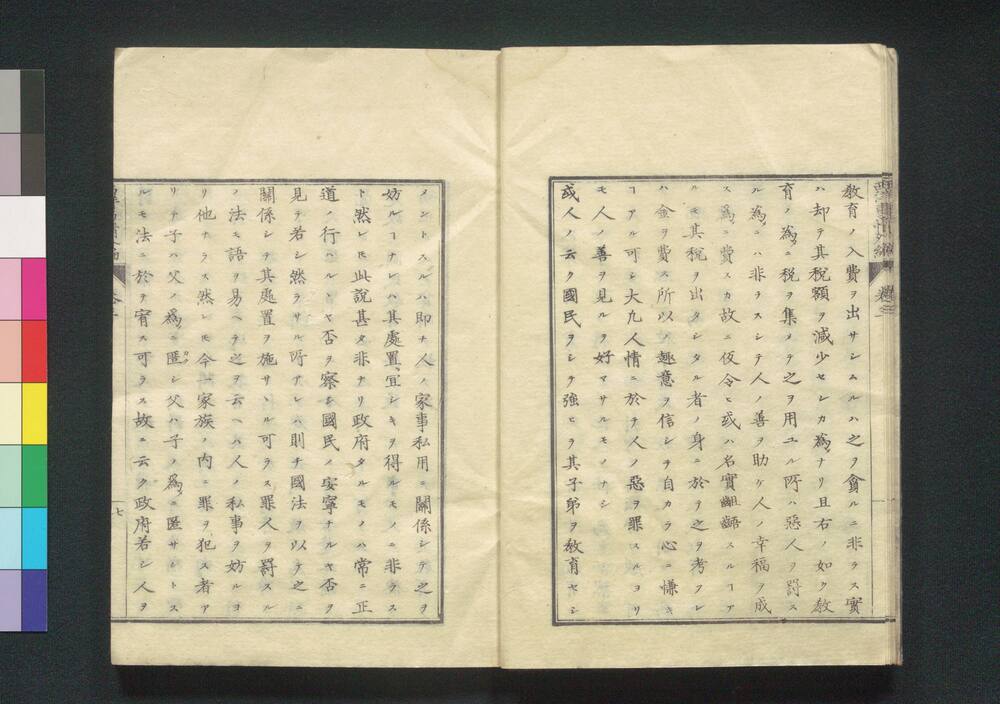 教育ノ入費ヲ出サシムルハ之ヲ貪ルニ非ラス實
ハ却テ其税額ヲ減少センカ為メナリ且右ノ如ク教
育ノ為メニ税ヲ集メテ之ヲ用ユル所ハ惡人ヲ罰ス
ル為メニハ非ラスシテ人ノ善ヲ助ケ人ノ幸福ヲ成
ス為メニ費スカ故ニ仮令ヒ或ハ名實齟齬スルヿア
ルモ其税ヲ出タシタル者ノ身ニ於テ之ヲ考フレ
ハ金ヲ費ス所以ノ趣意ヲ信シテ自カラ心ニ慊キ
ヿアル可シ大凡人情ニ於テ人ノ惡ヲ罪スルヨリ
モ人ノ善ヲ見ルヲ好マサルモノナシ
或人ノ云ク國民ヲシテ強ヒテ其子弟ヲ教育セシ
メントスルハ即チ人ノ家事私用ニ關係シテ之ヲ
妨ルヿナレハ其處置宜シキヲ得ルモノニ非ラス
ト然レ𪜈此説甚タ非ナリ政府タルモノハ常ニ正
道ノ行ハルヽヤ否ヲ察シ國民ノ安寧ナルヤ否ヲ
見テ若シ然ラサル所アレハ則チ國法ヲ以テ之ニ
關係シテ其處置ヲ施サヽル可ラス罪人ヲ罰スル
ノ法モ語ヲ易ヘテ之ヲ云ヘハ人ノ私事ヲ妨ルヨ
リ他ナラス然レ𪜈今一家族ノ内ニ罪ヲ犯ス者ア
リテ子ハ父ノ為メニ匿カクシ父ハ子ノ為メニ匿サントス
ルモ法ニ於テ宥ス可ラス故ニ云ク政府若シ人ヲ
七